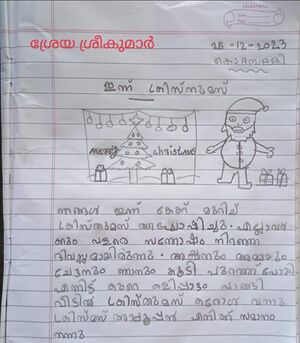 ശ്രേയ ശ്രീകുമാർ
25-12-2023
ഇന്ന് ക്രിസ്തുമസ്
merry christmas
ഞങ്ങൾ ഇന്ന് കേക്ക് മുറിച്ച്
ക്രിസ്തുമസ് ആഘോഷിച്ചു. എല്ലാവർ
ക്കും വളരെ സന്തോഷം നിറഞ്ഞ
ദിവസമായിരുന്നു. അച്ഛനും അമ്മയും
ചേട്ടനും ഞാനും കൂടി പുറത്തു പോയി
എന്നിട്ട് കുറെ കളിപ്പാട്ടം വാങ്ങി
വീട്ടിൽ ക്രിസ്തുമസ് കരോൾ വന്നു
ക്രിസ്മസ് അപ്പൂപ്പൻ എനിക്ക് സമ്മാനം
തന്നു